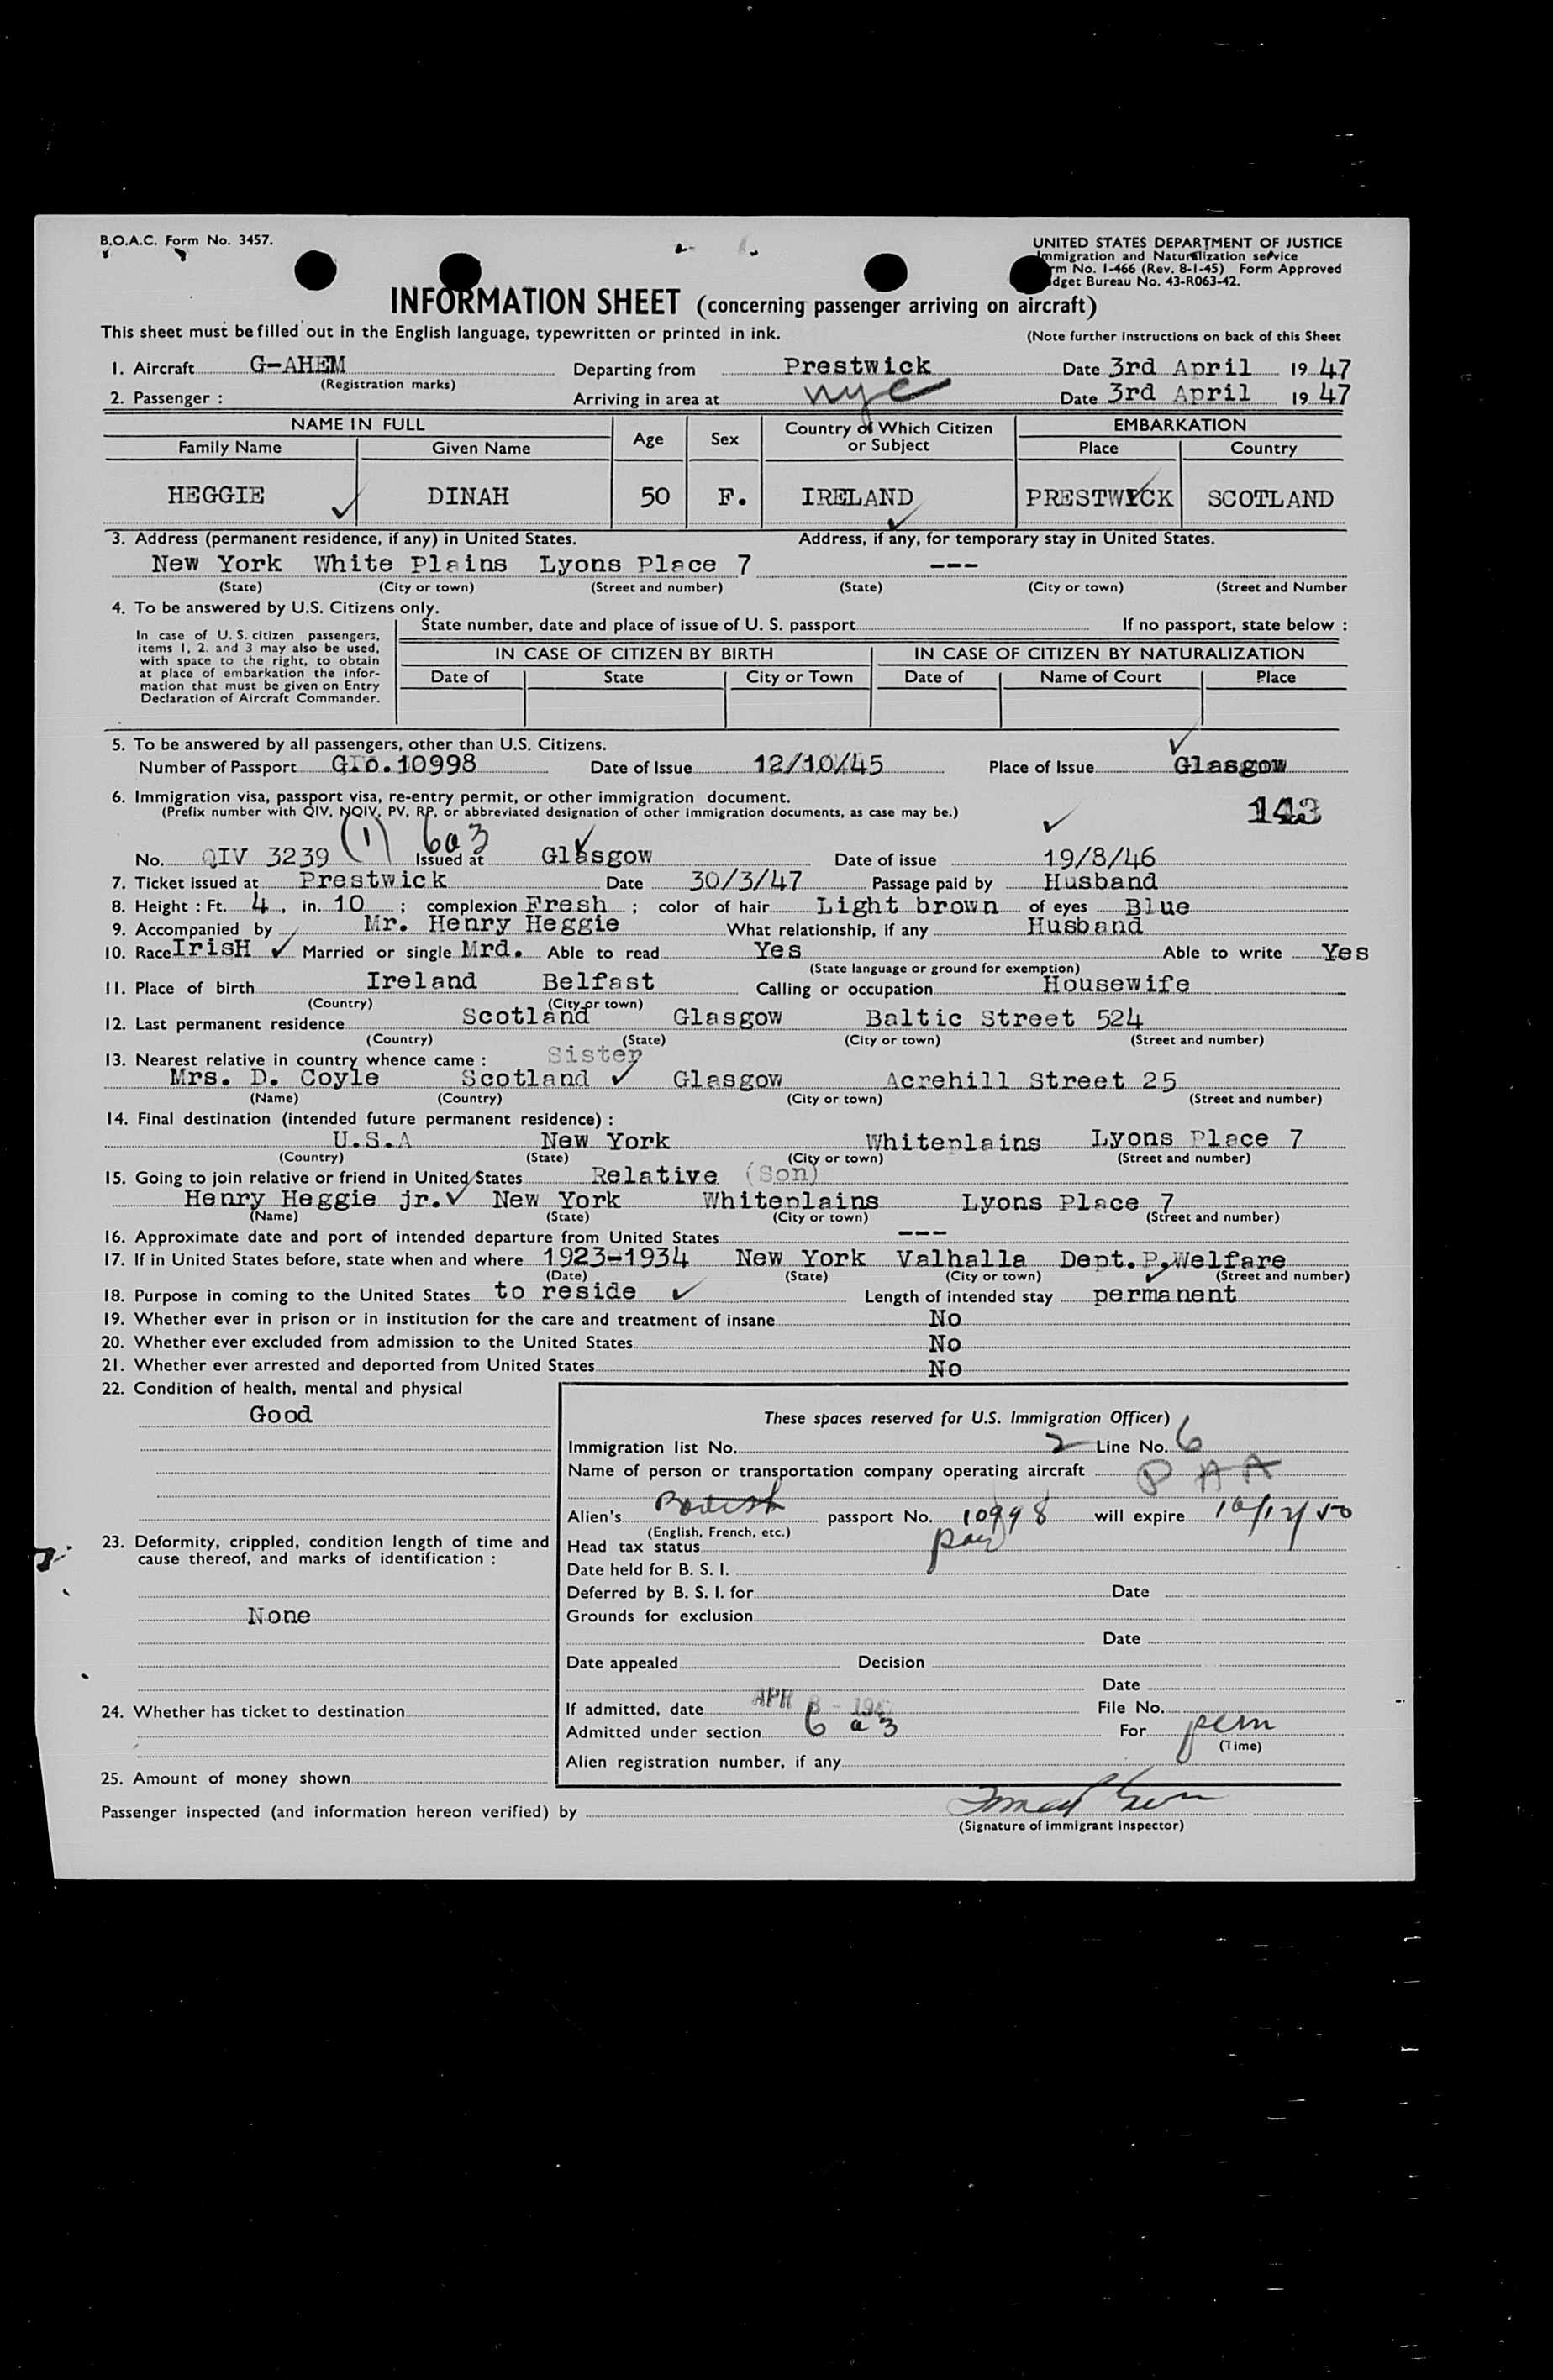 B.O.A.C. Form No. 3457.
UNITED STATES DEPARTMENT OF JUSTICE
Immigration and Naturalization service
rm No. I-466 (Rev. 8-1-45) Form Approved
dget Bureau No. 43-R063-42.
INFORMATION SHEET (concerning passenger arriving on aircraft)
This sheet must be filled out in the English language, typewritten or printed in ink.
(Note further instructions on back of this Sheet
1. Aircraft G-AHEM Departing from Prestwick Date 3rd April 19 47
(Registration marks)
2. Passenger : Arriving in area at nyc Date 3rd April 19 47
NAME IN FULL Age Sex Country of Which Citizen or Subject EMBARKATION
Family Name Given Name Place Country
HEGGIE DINAH 50 F. IRELAND PRESTWICK SCOTLAND
3. Address (permanent residence, if any) in United States. Address, if any, for temporary stay in United States.
New York White Plains Lyons Place 7 ---
(State) (City or town) (Street and number) (State) (City or town) (Street and Number
4. To be answered by U.S. Citizens only.
State number, date and place of issue of U. S. passport If no passport, state below :
In case of U. S. citizen passengers,
items 1, 2. and 3 may also be used,
with space to the right, to obtain
at place of embarkation the infor-
mation that must be given on Entry
Declaration of Aircraft Commander.
IN CASE OF CITIZEN BY BIRTH IN CASE OF CITIZEN BY NATURALIZATION
Date of State City or Town Date of Name of Court Place
5. To be answered by all passengers, other than U.S. Citizens.
Number of Passport 10998 Date of Issue 12/10/45 Place of Issue Glasgow
6. Immigration visa, passport visa, re-entry permit, or other immigration document.
(Prefix number with QIV, NQIV, PV, RP, or abbreviated designation of other immigration documents, as case may be.)
143
(1) 6a3
No. QIV 3239 Issued at Glasgow Date of issue 19/8/46
7. Ticket issued at Prestwick Date 30/3/47 Passage paid by Husband
8. Height : Ft. 4, in. 10 ; complexion Fresh ; color of hair Light brown of eyes Blue
9. Accompanied by Mr. Henry Heggie What relationship, if any Husband
10. Race IrisH Married or single Mrd. Able to read Yes Able to write Yes
(State language or ground for exemption)
11. Place of birth Ireland Belfast Calling or occupation Housewife
(Country) (City or town)
12. Last permanent residence Scotland Glasgow Baltic Street 524
(Country) (State) (City or town) (Street and number)
13. Nearest relative in country whence came : Sister
Mrs. D. Coyle Scotland Glasgow Acrehill Street 25
(Name) (Country) (City or town) (Street and number)
14. Final destination (intended future permanent residence) :
U.S.A New York Whiteplains Lyons Place 7
(Country) (State) (City or town) (Street and number)
15. Going to join relative or friend in United States Relative (Son)
Henry Heggie jr. New York Whiteplains Lyons Place 7
(Name) (State) (City or town) (Street and number)
16. Approximate date and port of intended departure from United States ---
17. If in United States before, state when and where 1923-1934 New York Valhalla Dept.P.Welfare
(Date) (State) (City or town) (Street and number)
18. Purpose in coming to the United States to reside Length of intended stay permanent
19. Whether ever in prison or in institution for the care and treatment of insane No
20. Whether ever excluded from admission to the United States No
21. Whether ever arrested and deported from United States No
22. Condition of health, mental and physical
Good
These spaces reserved for U.S. Immigration Officer)
Immigration list No. 2 Line No. 6
Name of person or transportation company operating aircraft PAA
Alien's British passport No. 10998 will expire
(English, French, etc.)
23. Deformity, crippled, condition length of time and
cause thereof, and marks of identification :
None
Head tax status
Date held for B. S. I.
Deferred by B. S. I. for Date
Grounds for exclusion
Date
Date appealed Decision
Date
24. Whether has ticket to destination
If admitted, date APR File No.
Admitted under section 6 a 3 For perm
(Time)
Alien registration number, if any
25. Amount of money shown
Passenger inspected (and information hereon verified) by
(Signature of immigrant inspector)